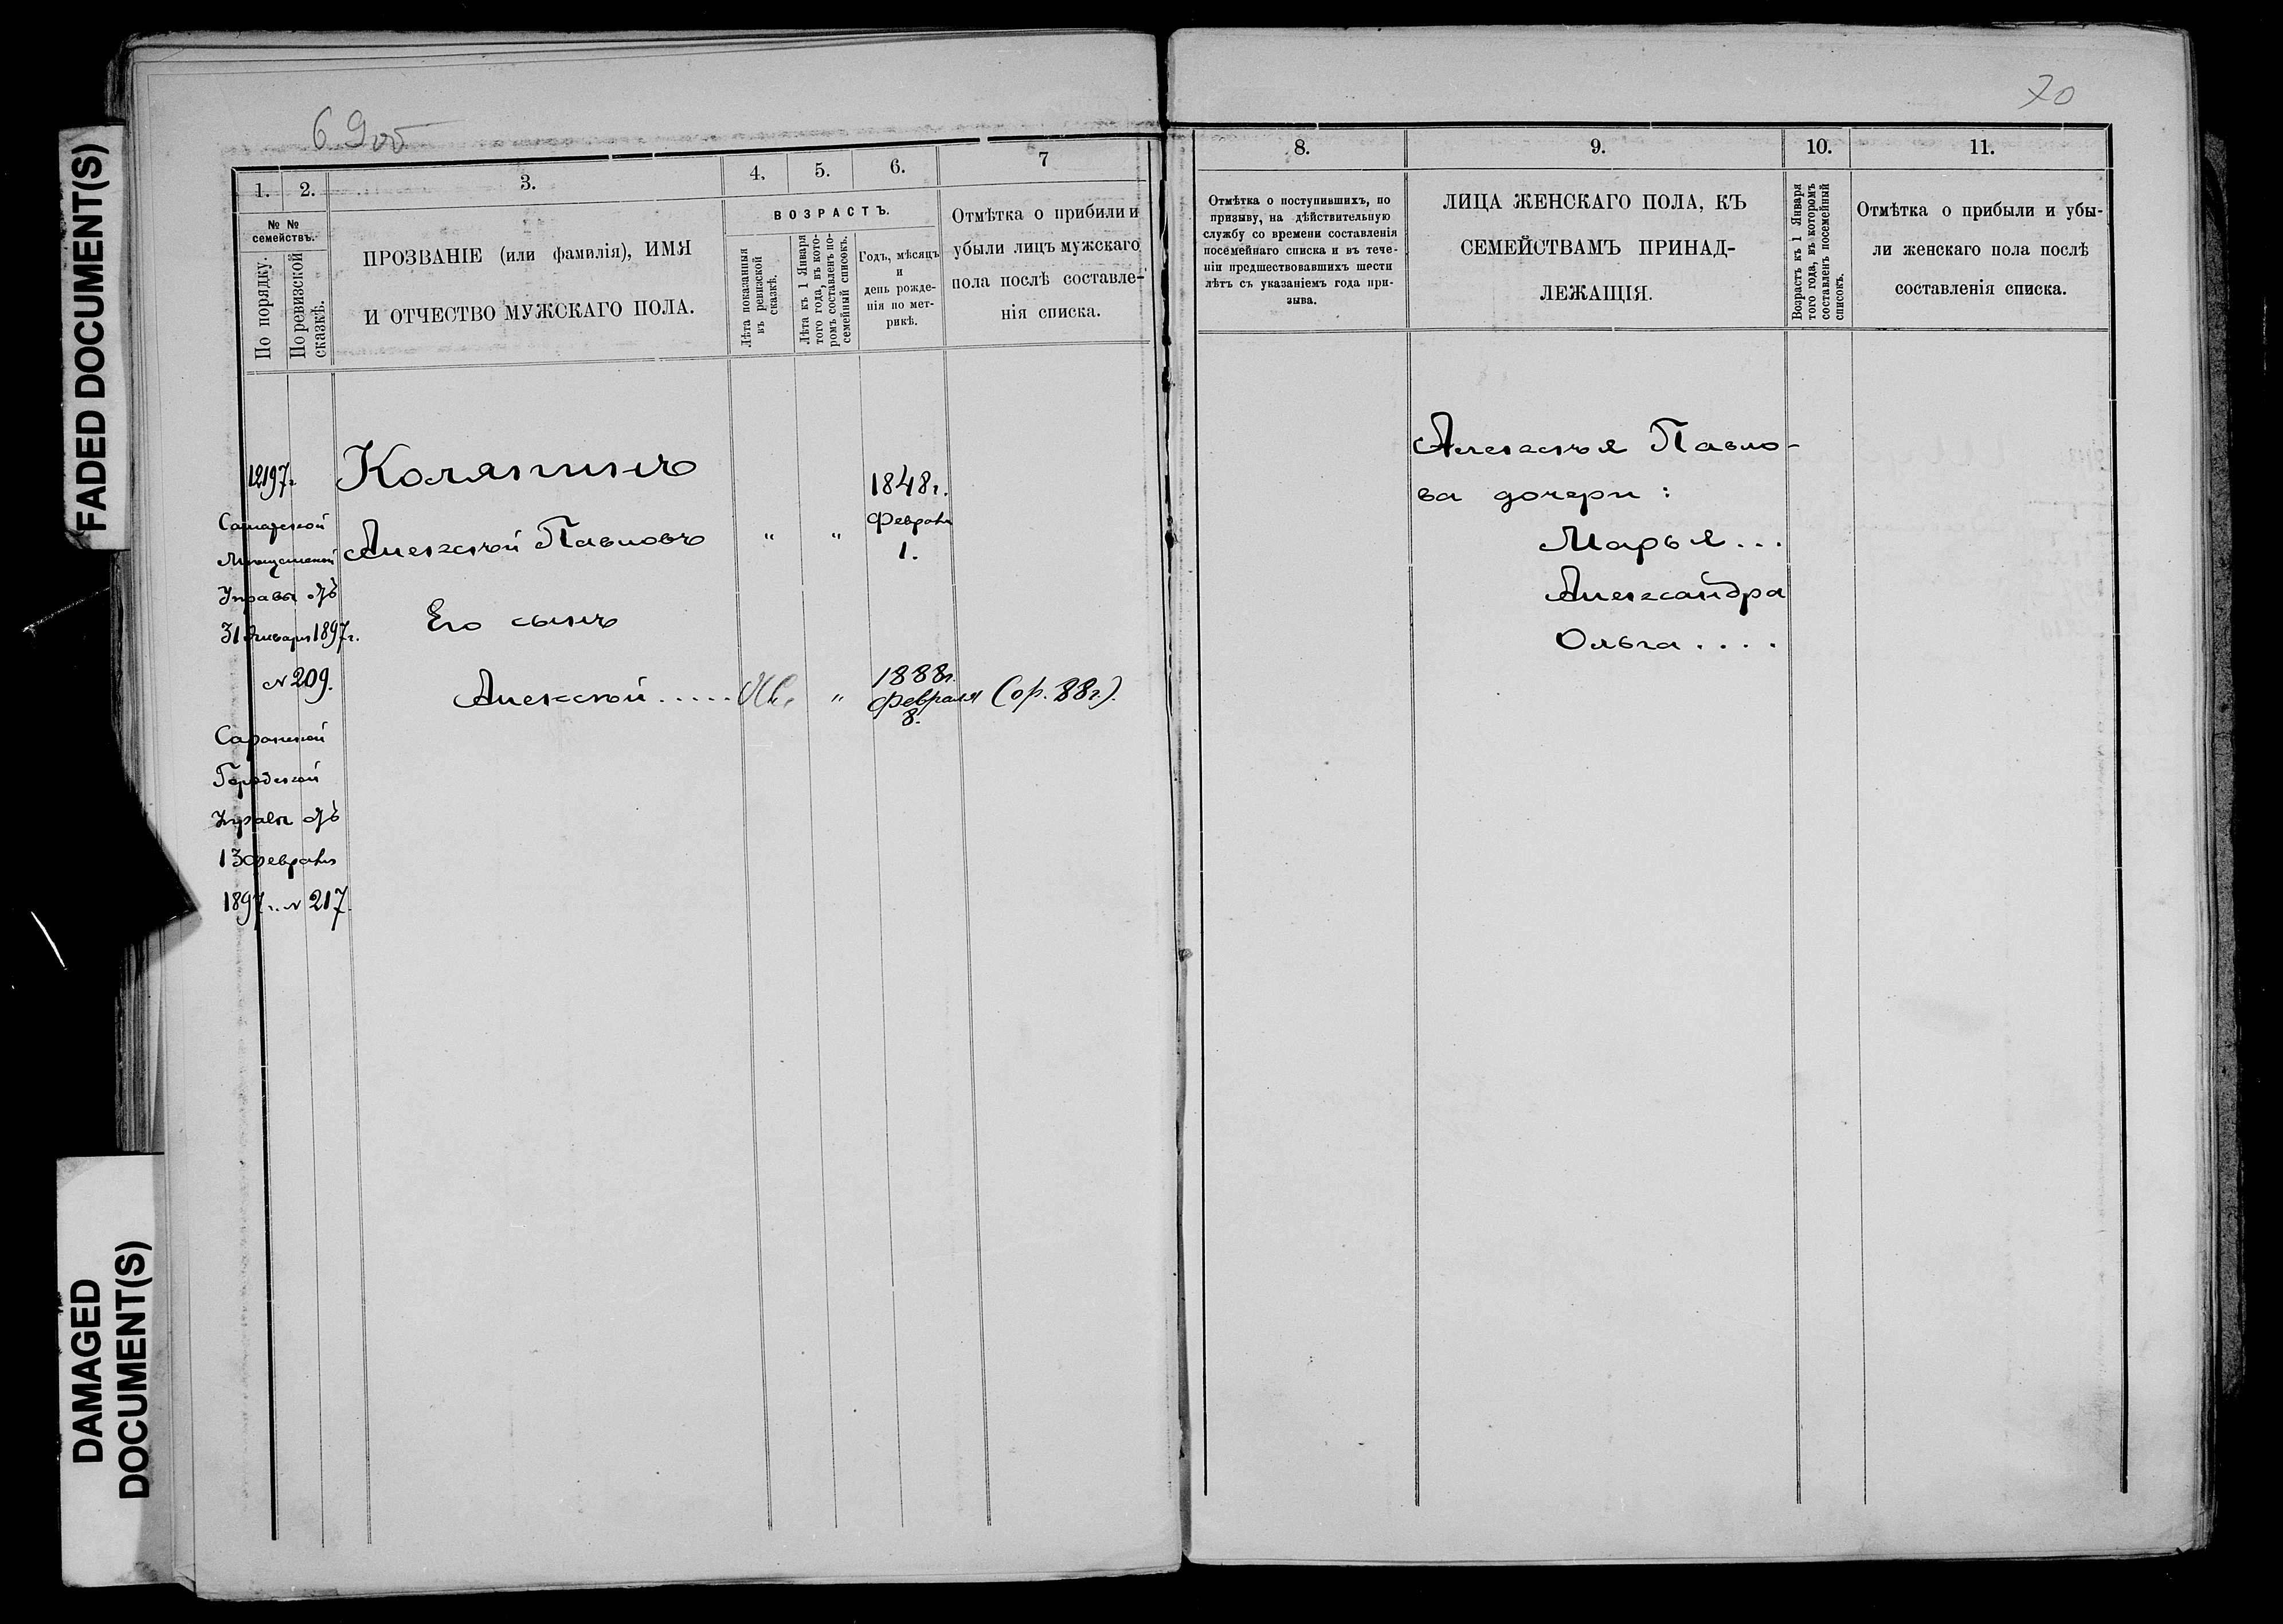 FADED DOCUMENT(S)
DAMAGED
DOCUMENT(S)
69об
1.
2.
3.
4.
5.
6.
7
№ №
семействъ.
По порядку.
По ревизской
сказкѣ.
ПРОЗВАНІЕ (или фамилія), ИМЯ
И ОТЧЕСТВО МУЖСКАГО ПОЛА.
ВОЗРАСТЪ.
Лѣта показанныя
въ ревизской
сказкѣ.
Лѣта къ 1 Января
того года, въ кото-
ромъ составленъ по-
семейный списокъ.
Годъ, мѣсяцъ
и
день рожде-
нія по мет-
рикѣ.
Отмѣтка о прибили и
убыли лицъ мужскаго
пола послѣ составле-
нія списка.
12197.
Самарской
Мѣщанской
Управы отъ
31 Января 1897г.
№ 209.
Саранской
Городской
Управы отъ
13 Февраля
1897г. № 217.
Колягинъ
Алексѣй Павловъ " "
1848г.
Февраля
1.
Его сынъ
Алексѣй ..... "
1888г.
Февраля
8.
(ор. 88г).
70
8.
9.
10.
11.
Отмѣтка о поступившихъ, по
призыву, на дѣйствительную
службу со времени составленія
посемейнаго списка и въ тече-
ніи предшествовавшихъ шести
лѣтъ съ указаніемъ года при-
зыва.
ЛИЦА ЖЕНСКАГО ПОЛА, КЪ
СЕМЕЙСТВАМЪ ПРИНАД-
ЛЕЖАЩІЯ.
Возрастъ къ 1 Января
того года, въ которомъ
составленъ посемейный
списокъ.
Отмѣтка о прибыли и убы-
ли женскаго пола послѣ
составленія списка.
Алексѣя Павло-
ва дочери:
Марья...
Александра
Ольга....